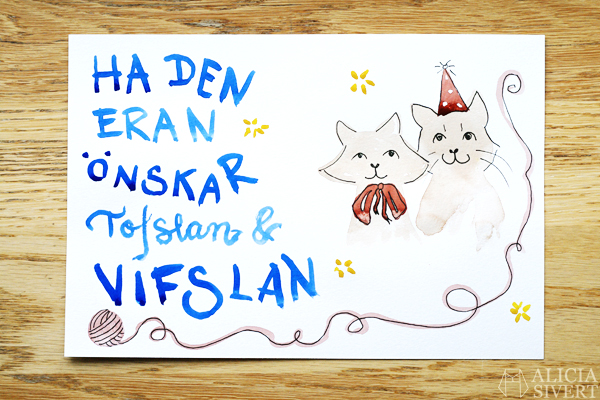 HA DEN
ERAN
ÖNSKAR
Tofslan &
VIFSLAN
ALICIA
SIVERT